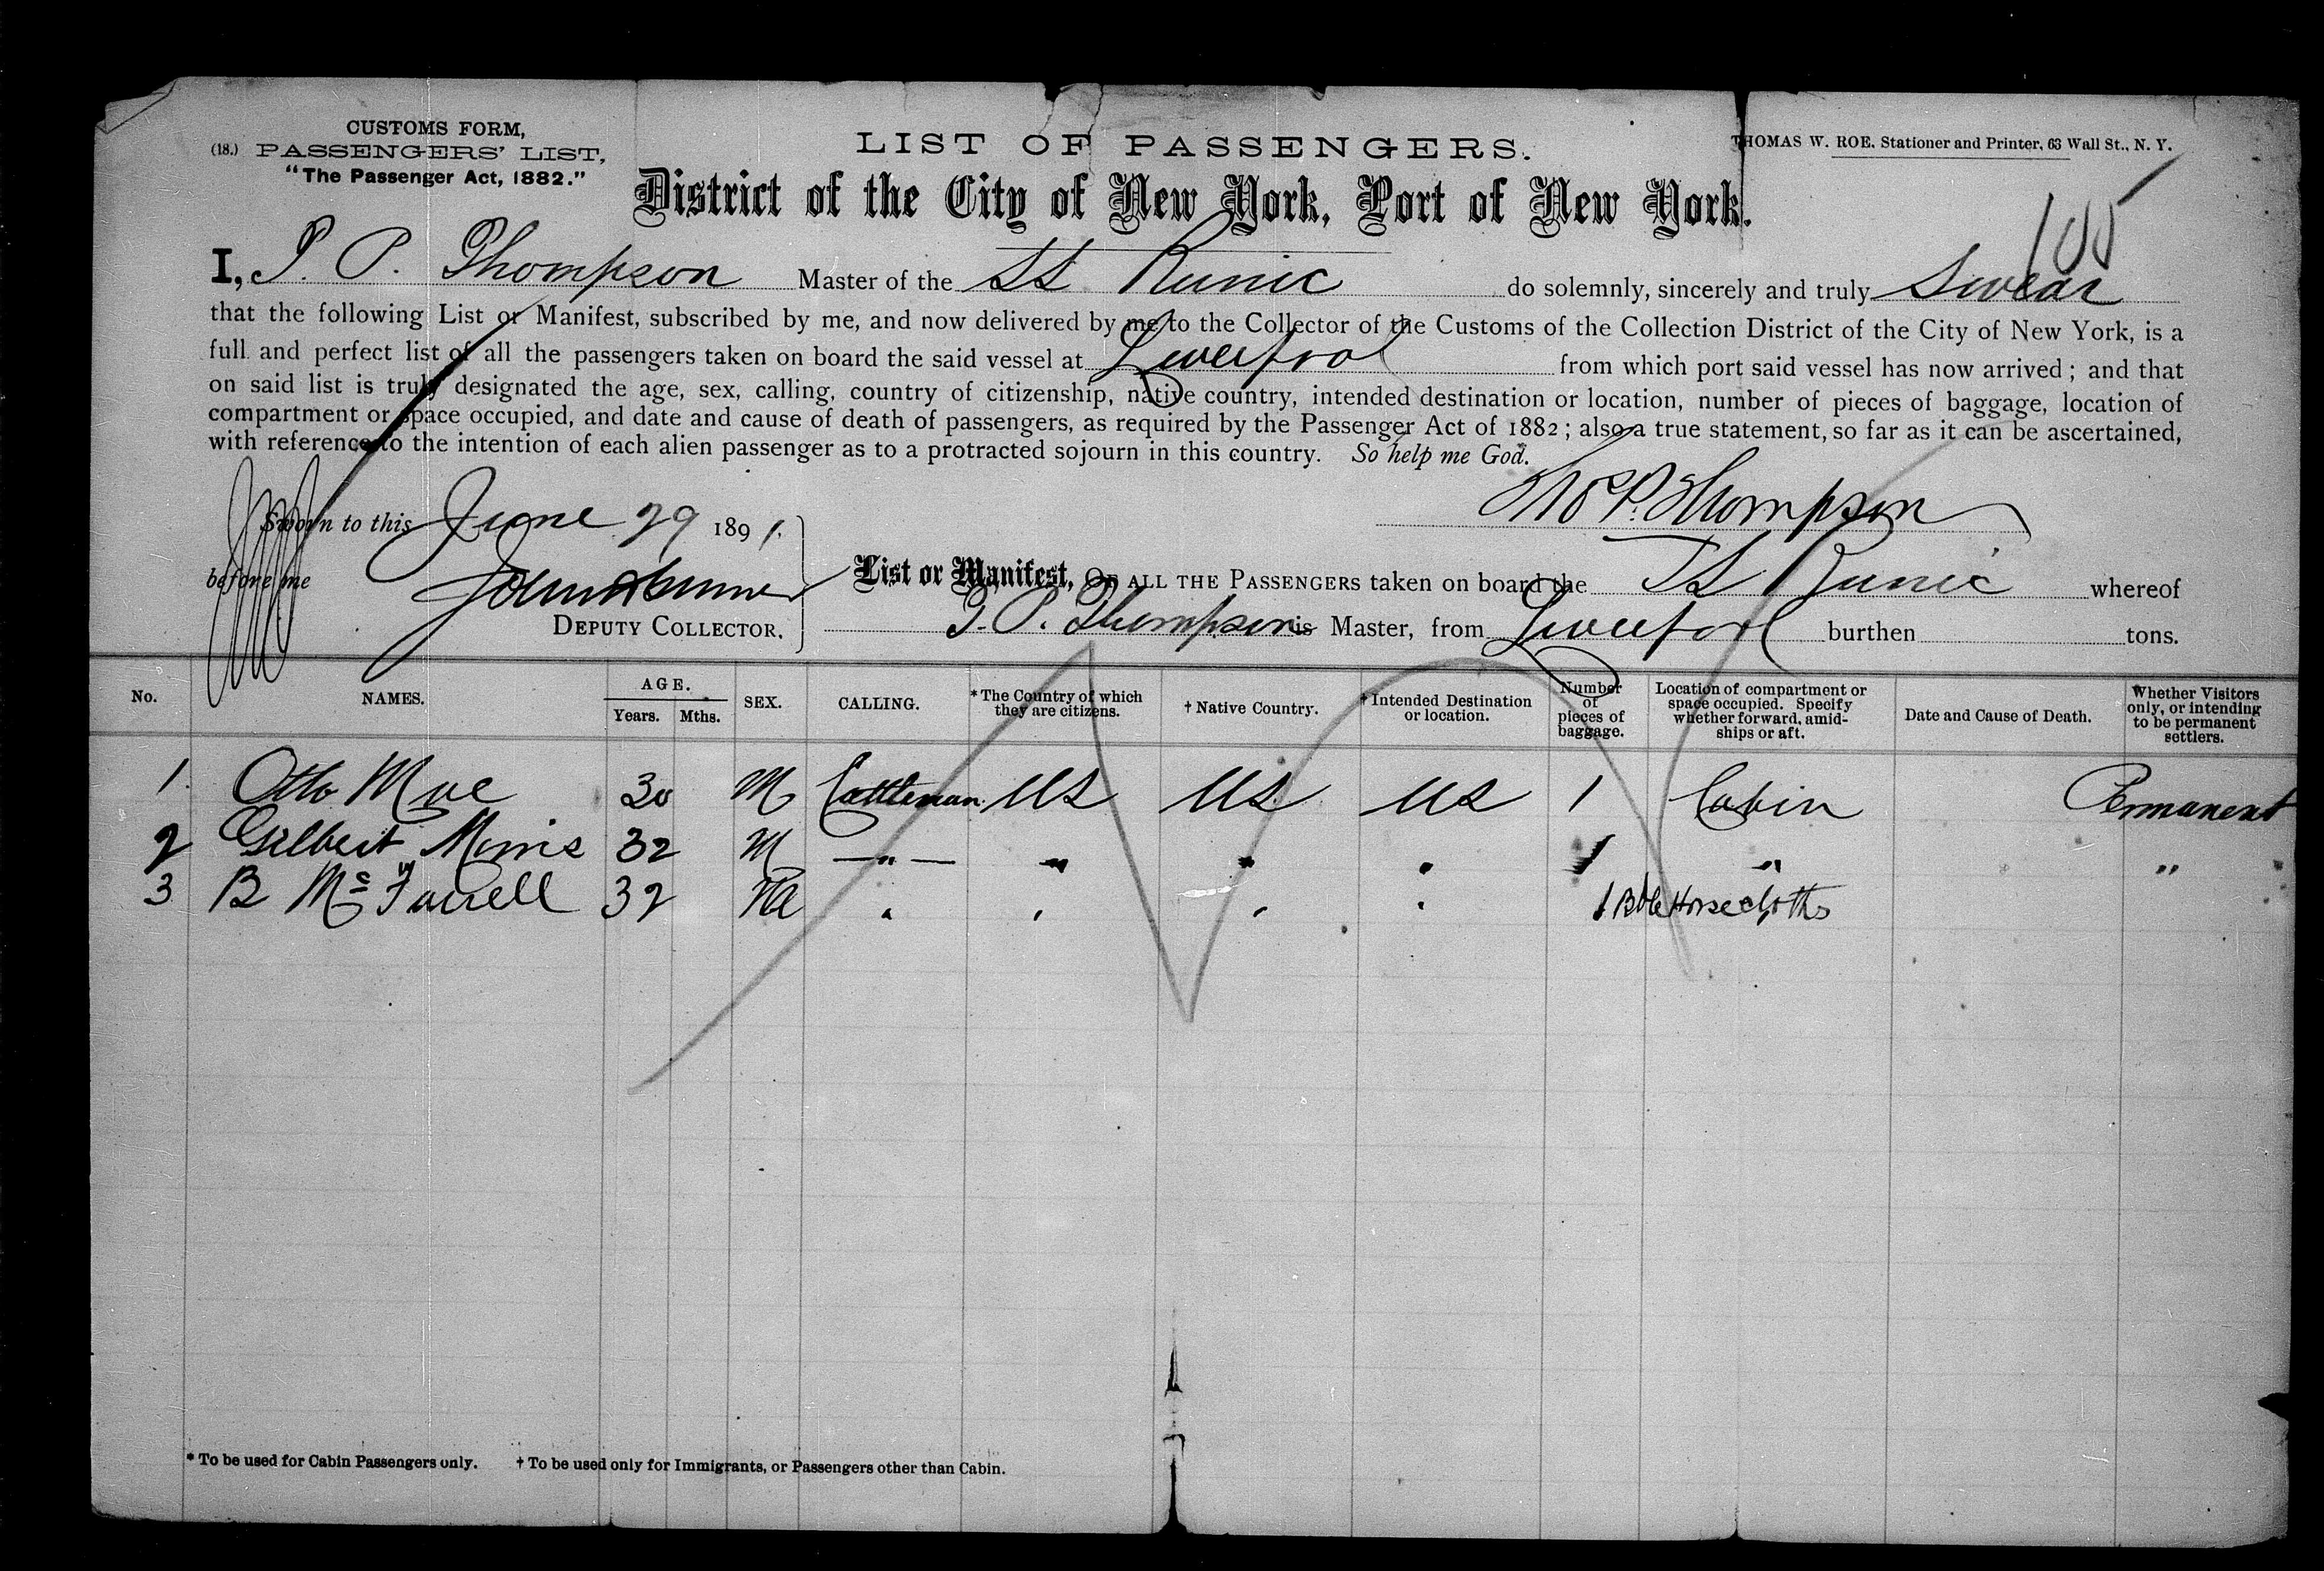 CUSTOMS FORM,
(18.) PASSENGERS' LIST,
"The Passenger Act, 1882."
LIST OF PASSENGERS.
THOMAS W. ROE, Stationer and Printer, 63 Wall St., N. Y.
District of the City of New York, Port of New York.
105
I, J. P. Thompson Master of the SS Runic do solemnly, sincerely and truly Swear
that the following List or Manifest, subscribed by me, and now delivered by me to the Collector of the Customs of the Collection District of the City of New York, is a
full and perfect list of all the passengers taken on board the said vessel at Liverpool from which port said vessel has now arrived; and that
on said list is truly designated the age, sex, calling, country of citizenship, native country, intended destination or location, number of pieces of baggage, location of
compartment or space occupied, and date and cause of death of passengers, as required by the Passenger Act of 1882; also a true statement, so far as it can be ascertained,
with reference to the intention of each alien passenger as to a protracted sojourn in this country. So help me God.
P. Thompson
Sworn to this June 29 1891.
before me
DEPUTY COLLECTOR.
List or Manifest, OF ALL THE PASSENGERS taken on board the SS Runic whereof
J. P. Thompson is Master, from Liverpool burthen tons.
No. NAMES. AGE. Years. Mths. SEX. CALLING. * The Country of which they are citizens. † Native Country. † Intended Destination or location. Number of pieces of baggage. Location of compartment or space occupied. Specify whether forward, amidships or aft. Date and Cause of Death. Whether Visitors only, or intending to be permanent settlers.
1. Otto 30 M Cattleman US US US 1 Cabin Permanent
2 Gilbert Morris 32 M —"— " " " 1 " "
3 B Mc Farrell 32 M " " " " 1 Bdle Horse cloths
* To be used for Cabin Passengers only. † To be used only for Immigrants, or Passengers other than Cabin.